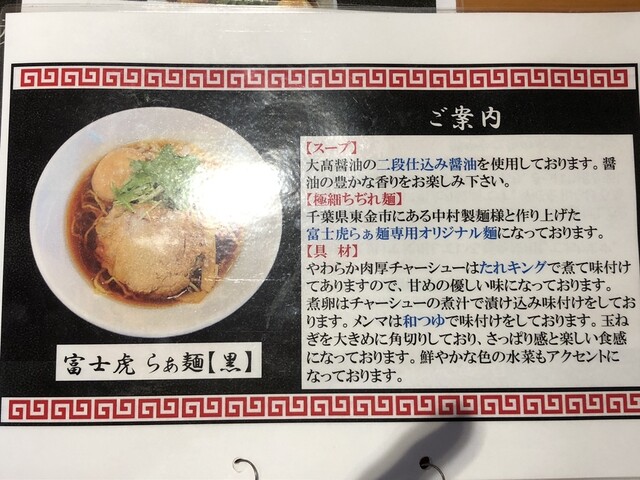 ご案内
【スープ】
大髙醤油の二段仕込み醤油を使用しております。醤
油の豊かな香りをお楽しみ下さい。
【極細ちぢれ麺】
千葉県東金市にある中村製麺様と作り上げた
富士虎らぁ麺専用オリジナル麺になっております。
【具 材】
やわらか肉厚チャーシューはたれキングで煮て味付け
てありますので、甘めの優しい味になっております。
煮卵はチャーシューの煮汁で漬け込み味付けをしてお
ります。メンマは和つゆで味付けをしております。玉ね
ぎを大きめに角切りしており、さっぱり感と楽しい食感
になっております。鮮やかな色の水菜もアクセントに
なっております。
富士虎 らぁ麺【黒】